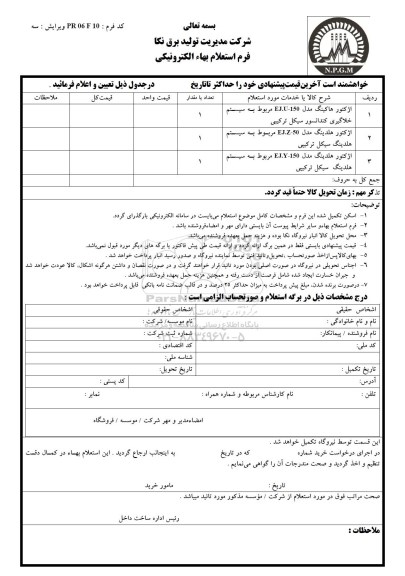 بسمه تعالی
کد فرم : PR 06 F 10 ویرایش : سه
شرکت مدیریت تولید برق نکا
فرم استعلام بهاء الکترونیکی
N.P.G.M
خواهشمند است آخرین قیمت پیشنهادی خود را حداکثر تا تاریخ درجدول ذیل تعیین و اعلام فرمائید .
ردیف شرح کالا یا خدمات مورد استعلام تعداد یا مقدار قیمت واحد قیمت کل ملاحظات
۱ اژکتور هاگینگ مدل EJ.U-150 مربوط به سیستم ۱
خلاءگیری کندانسور سیکل ترکیبی
۲ اژکتور هلدینگ مدل EJ.Z-50 مربوط به سیستم ۱
هلدینگ سیکل ترکیبی
۳ اژکتور هلدینگ مدل EJ.Y-150 مربوط به سیستم ۱
هلدینگ سیکل ترکیبی
جمع کل به حروف:
ذکر مهم : زمان تحویل کالا حتماً قید گردد.
توضیحات:
۱- اسکن تکمیل شده این فرم و مشخصات کامل موضوع استعلام می‌بایست در سامانه الکترونیکی بارگذاری گردد.
۲- فرم استعلام بهاء و سایر شرایط پیوست آن بایستی دارای مهر و امضاء فروشنده باشد .
۳- محل تحویل کالا انبار نیروگاه نکا بوده و هزینه حمل بعهده فروشنده می‌باشد.
۴- قیمت پیشنهادی بایستی فقط در همین برگ ارائه گردد و ارائه قیمت طی پیش فاکتور یا برگه های دیگر مورد قبول نمی‌باشد.
۵- بهای کالا پس از اخذ صورتحساب ، تحویل و تائید فنی توسط نماینده نیروگاه و صدور رسید انبار پرداخت خواهد شد .
۶- اجناس تحویلی در نیروگاه در صورت اصلی بودن مورد تائید قرار خواهند گرفت و در صورت نقصان و داشتن هرگونه اشکال، کالا عودت خواهد شد
و جبران خسارت ایجاد شده شامل فرصت از دست رفته و همچنین هزینه حمل بعهده فروشنده می‌باشد .
۷- درصورت برنده شدن، مبلغ پیش پرداخت به میزان حداکثر ۲۵ درصد و در قالب ضمانت نامه بانکی قابل پرداخت خواهد بود .
درج مشخصات ذیل در برگه استعلام و صورتحساب الزامی است :
اشخاص حقیقی اشخاص حقوقی
نام و نام خانوادگی : نام موسسه/ شرکت :
نام فروشنده / پیمانکار: شماره ثبت شرکت :
کد ملی: کد اقتصادی :
شناسه ملی:
تاریخ تکمیل : تاریخ تحویل:
آدرس: کد پستی :
تلفن : نام کارشناس مربوطه و شماره همراه : نمابر :
امضاء مدیر و مهر شرکت / موسسه / فروشگاه
این قسمت توسط نیروگاه تکمیل خواهد شد .
در اجرای درخواست خرید شماره که در تاریخ به اینجانب ارجاع گردید . این استعلام بهاء در کمال دقت
تنظیم و اخذ گردید و صحت مندرجات آن را گواهی می‌نمایم .
تاریخ : مامور خرید
صحت مراتب فوق در مورد استعلام از شرکت / مؤسسه مذکور مورد تائید میباشد .
رئیس اداره ساخت داخل
ملاحظات :